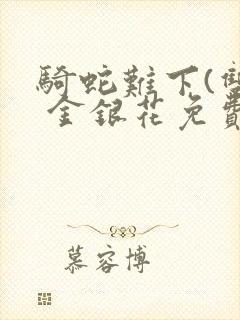 騎蛇難下(雙
金銀花免費
慕容博